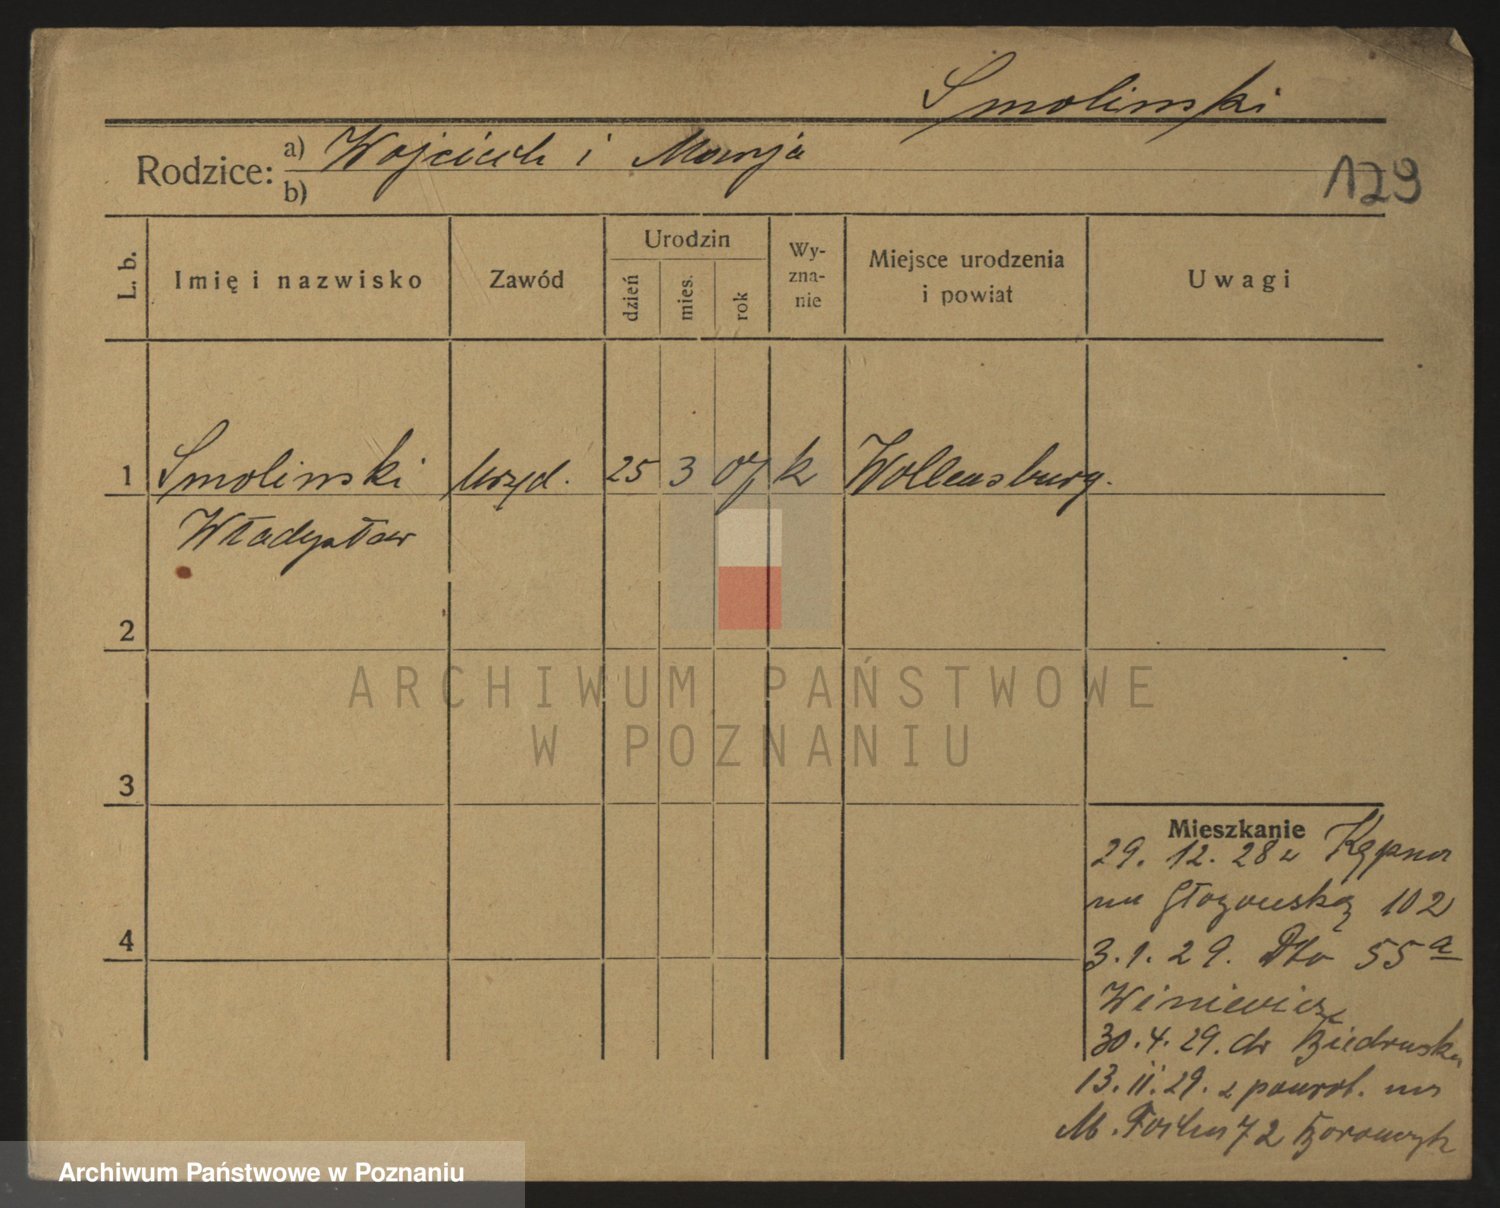 Smolinski
Rodzice: a) Wojciech i Marja
b)
129
L. b.
Imię i nazwisko
Zawód
Urodzin
dzień
mies.
rok
Wy-
zna-
nie
Miejsce urodzenia
i powiat
Uwagi
1 Smolinski urzęd. 25 3 07 k Wollensburg.
Władysław
2
ARCHIWUM PAŃSTWOWE
W POZNANIU
3
Mieszkanie
29. 12. 28 z Kępna
na Głogowską 102
3. 1. 29. Dto 55 a
Winiewicz
30. 4. 29. do Biedruska
13. 11. 29. z powrot. na
M. Focha 72
4
Archiwum Państwowe w Poznaniu